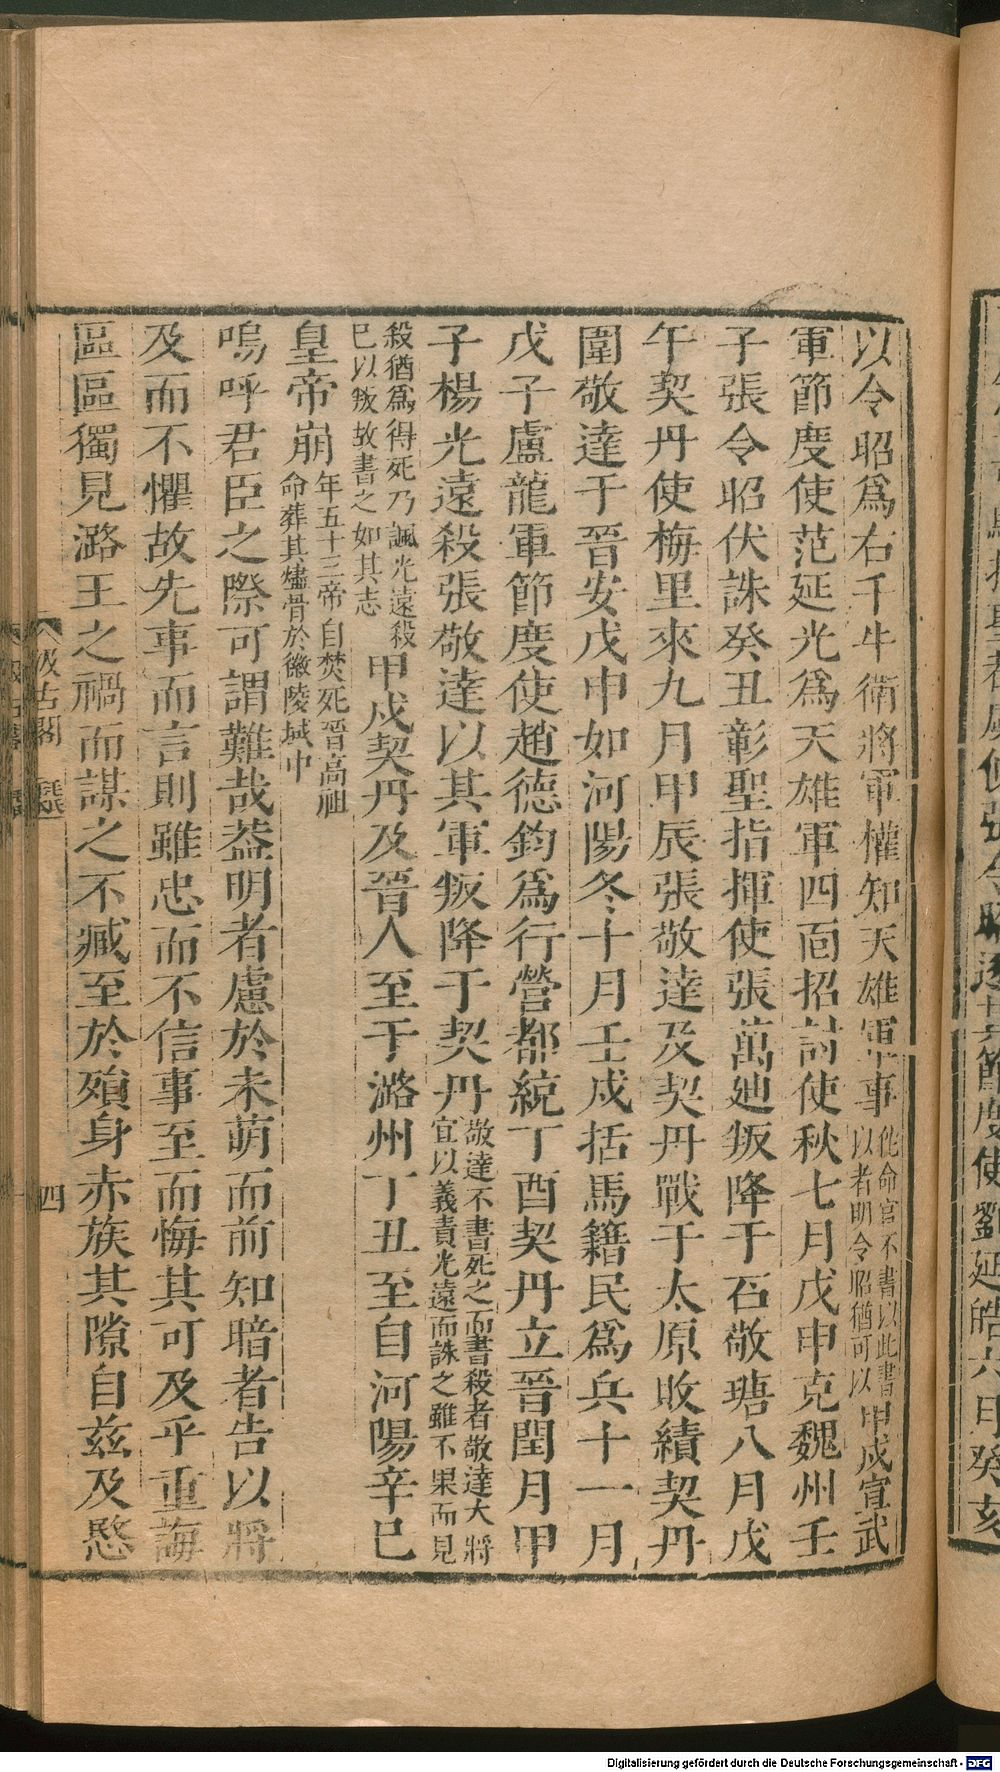 以令昭爲右千牛衛將軍權知天雄軍事他命官不書以此書以者明令昭猶可以甲戍宣武
軍節度使范延光爲天雄軍四面招討使秋七月戊申克魏州壬
子張令昭伏誅癸丑彰聖指揮使張萬廸叛降于石敬瑭八月戊
午契丹使梅里來九月甲辰張敬達及契丹戰于太原敗績契丹
圍敬達于晉安戊申如河陽冬十月壬戍括馬籍民爲兵十一月
戊子盧龍軍節度使趙德鈞爲行營都統丁酉契丹立晉閏月甲
子楊光遠殺張敬達以其軍叛降于契丹敬達不書死之而書殺者敬達大將宜以義責光遠而誅之雖不果而見
殺猶爲得死乃諷光遠殺巳以叛故書之如其志甲戍契丹及晉人至于潞州丁丑至自河陽辛巳
皇帝崩年五十三帝自焚死晉高祖命葬其燼骨於徽陵域中
嗚呼君臣之際可謂難哉蓋明者慮於未萌而前知暗者告以將
及而不懼故先事而言則雖忠而不信事至而悔其可及乎重誨
區區獨見潞王之禍而謀之不臧至於殞身赤族其隙自兹及愍
汲古閣
四
節度使劉延皓六月癸亥
Digitalisierung gefördert durch die Deutsche Forschungsgemeinschaft - DFG